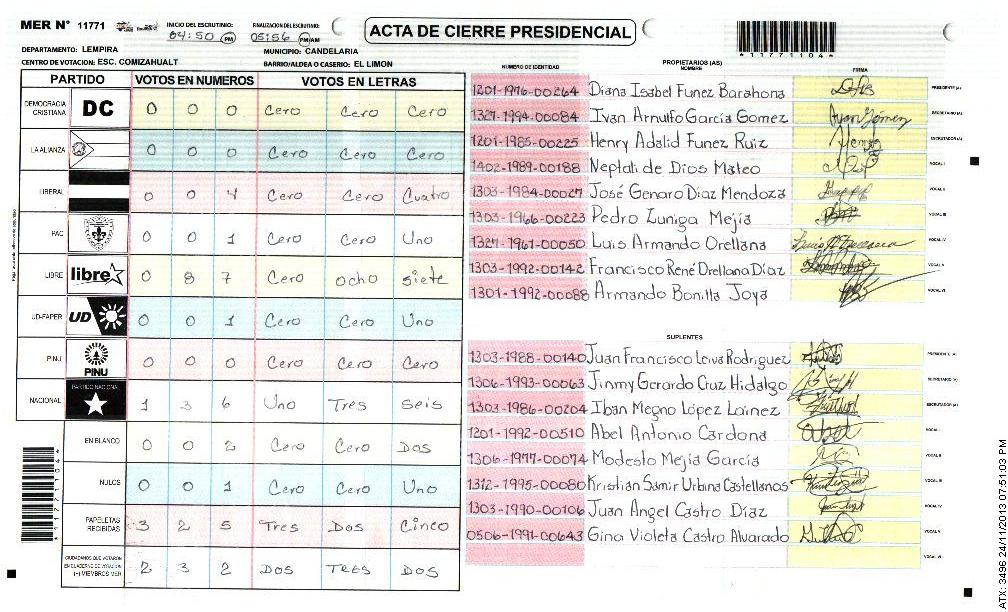 MER N° 11771
INICIO DEL ESCRUTINIO: 04:50 PM
FINALIZACION DEL ESCRUTINIO: 05:56 PM/AM
ACTA DE CIERRE PRESIDENCIAL
*11771104*
DEPARTAMENTO: LEMPIRA
MUNICIPIO: CANDELARIA
CENTRO DE VOTACION: ESC. COMIZAHUALT
BARRIO/ALDEA O CASERIO: EL LIMON
PARTIDO VOTOS EN NUMEROS VOTOS EN LETRAS
DEMOCRACIA CRISTIANA DC 0 0 0 Cero Cero Cero
LA ALIANZA 0 0 0 Cero Cero Cero
LIBERAL 0 0 4 Cero Cero Cuatro
PAC 0 0 1 Cero Cero Uno
LIBRE libre 0 8 7 Cero ocho siete
UD-FAPER UD 0 0 1 Cero Cero Uno
PINU PINU 0 0 0 Cero Cero Cero
NACIONAL PARTIDO NACIONAL 1 3 6 Uno Tres seis
EN BLANCO 0 0 2 Cero Cero Dos
NULOS 0 0 1 Cero Cero Uno
PAPELETAS RECIBIDAS 3 2 5 Tres Dos Cinco
CIUDADANOS QUE VOTARON EN CUADERNO DE VOTACION (+) MIEMBROS MER 2 3 2 DOS TRES DOS
*11771104*
PROPIETARIOS (AS)
NUMERO DE IDENTIDAD NOMBRE FIRMA
1201-1976-00264 Diana Isabel Funez Barahona PRESIDENTE (A)
1327-1994-00084 Ivan Arnulfo García Gomez SECRETARIO (A)
1201-1985-00225 Henry Adalid Funez Ruiz ESCRUTADOR (A)
1402-1989-00188 Neptali de Dios Mateo VOCAL I
1303-1984-00027 José Genaro Díaz Mendoza VOCAL II
1303-1966-00223 Pedro Zuniga Mejía VOCAL III
1327-1961-00050 Luis Armando Orellana VOCAL IV
1303-1992-00142 Francisco René Orellana Díaz VOCAL V
1301-1992-00088 Armando Bonilla Joya VOCAL VI
SUPLENTES
1303-1988-00140 Juan Francisco Leiva Rodriguez PRESIDENTE (A)
1306-1993-00063 Jinmy Gerardo Cruz Hidalgo SECRETARIO (A)
1303-1986-00204 Iban Megno López Laínez ESCRUTADOR (A)
1201-1992-00510 Abel Antonio Cardona VOCAL I
1306-1977-00074 Modesto Mejía García VOCAL II
1312-1995-00080 Kristian Samir Urbina Castellanos VOCAL III
1303-1990-00106 Juan Angel Castro Díaz VOCAL IV
0506-1991-00643 Gina Violeta Castro Alvarado VOCAL V
VOCAL VI
ATX: 3496 24/11/2013 07:51:03 PM